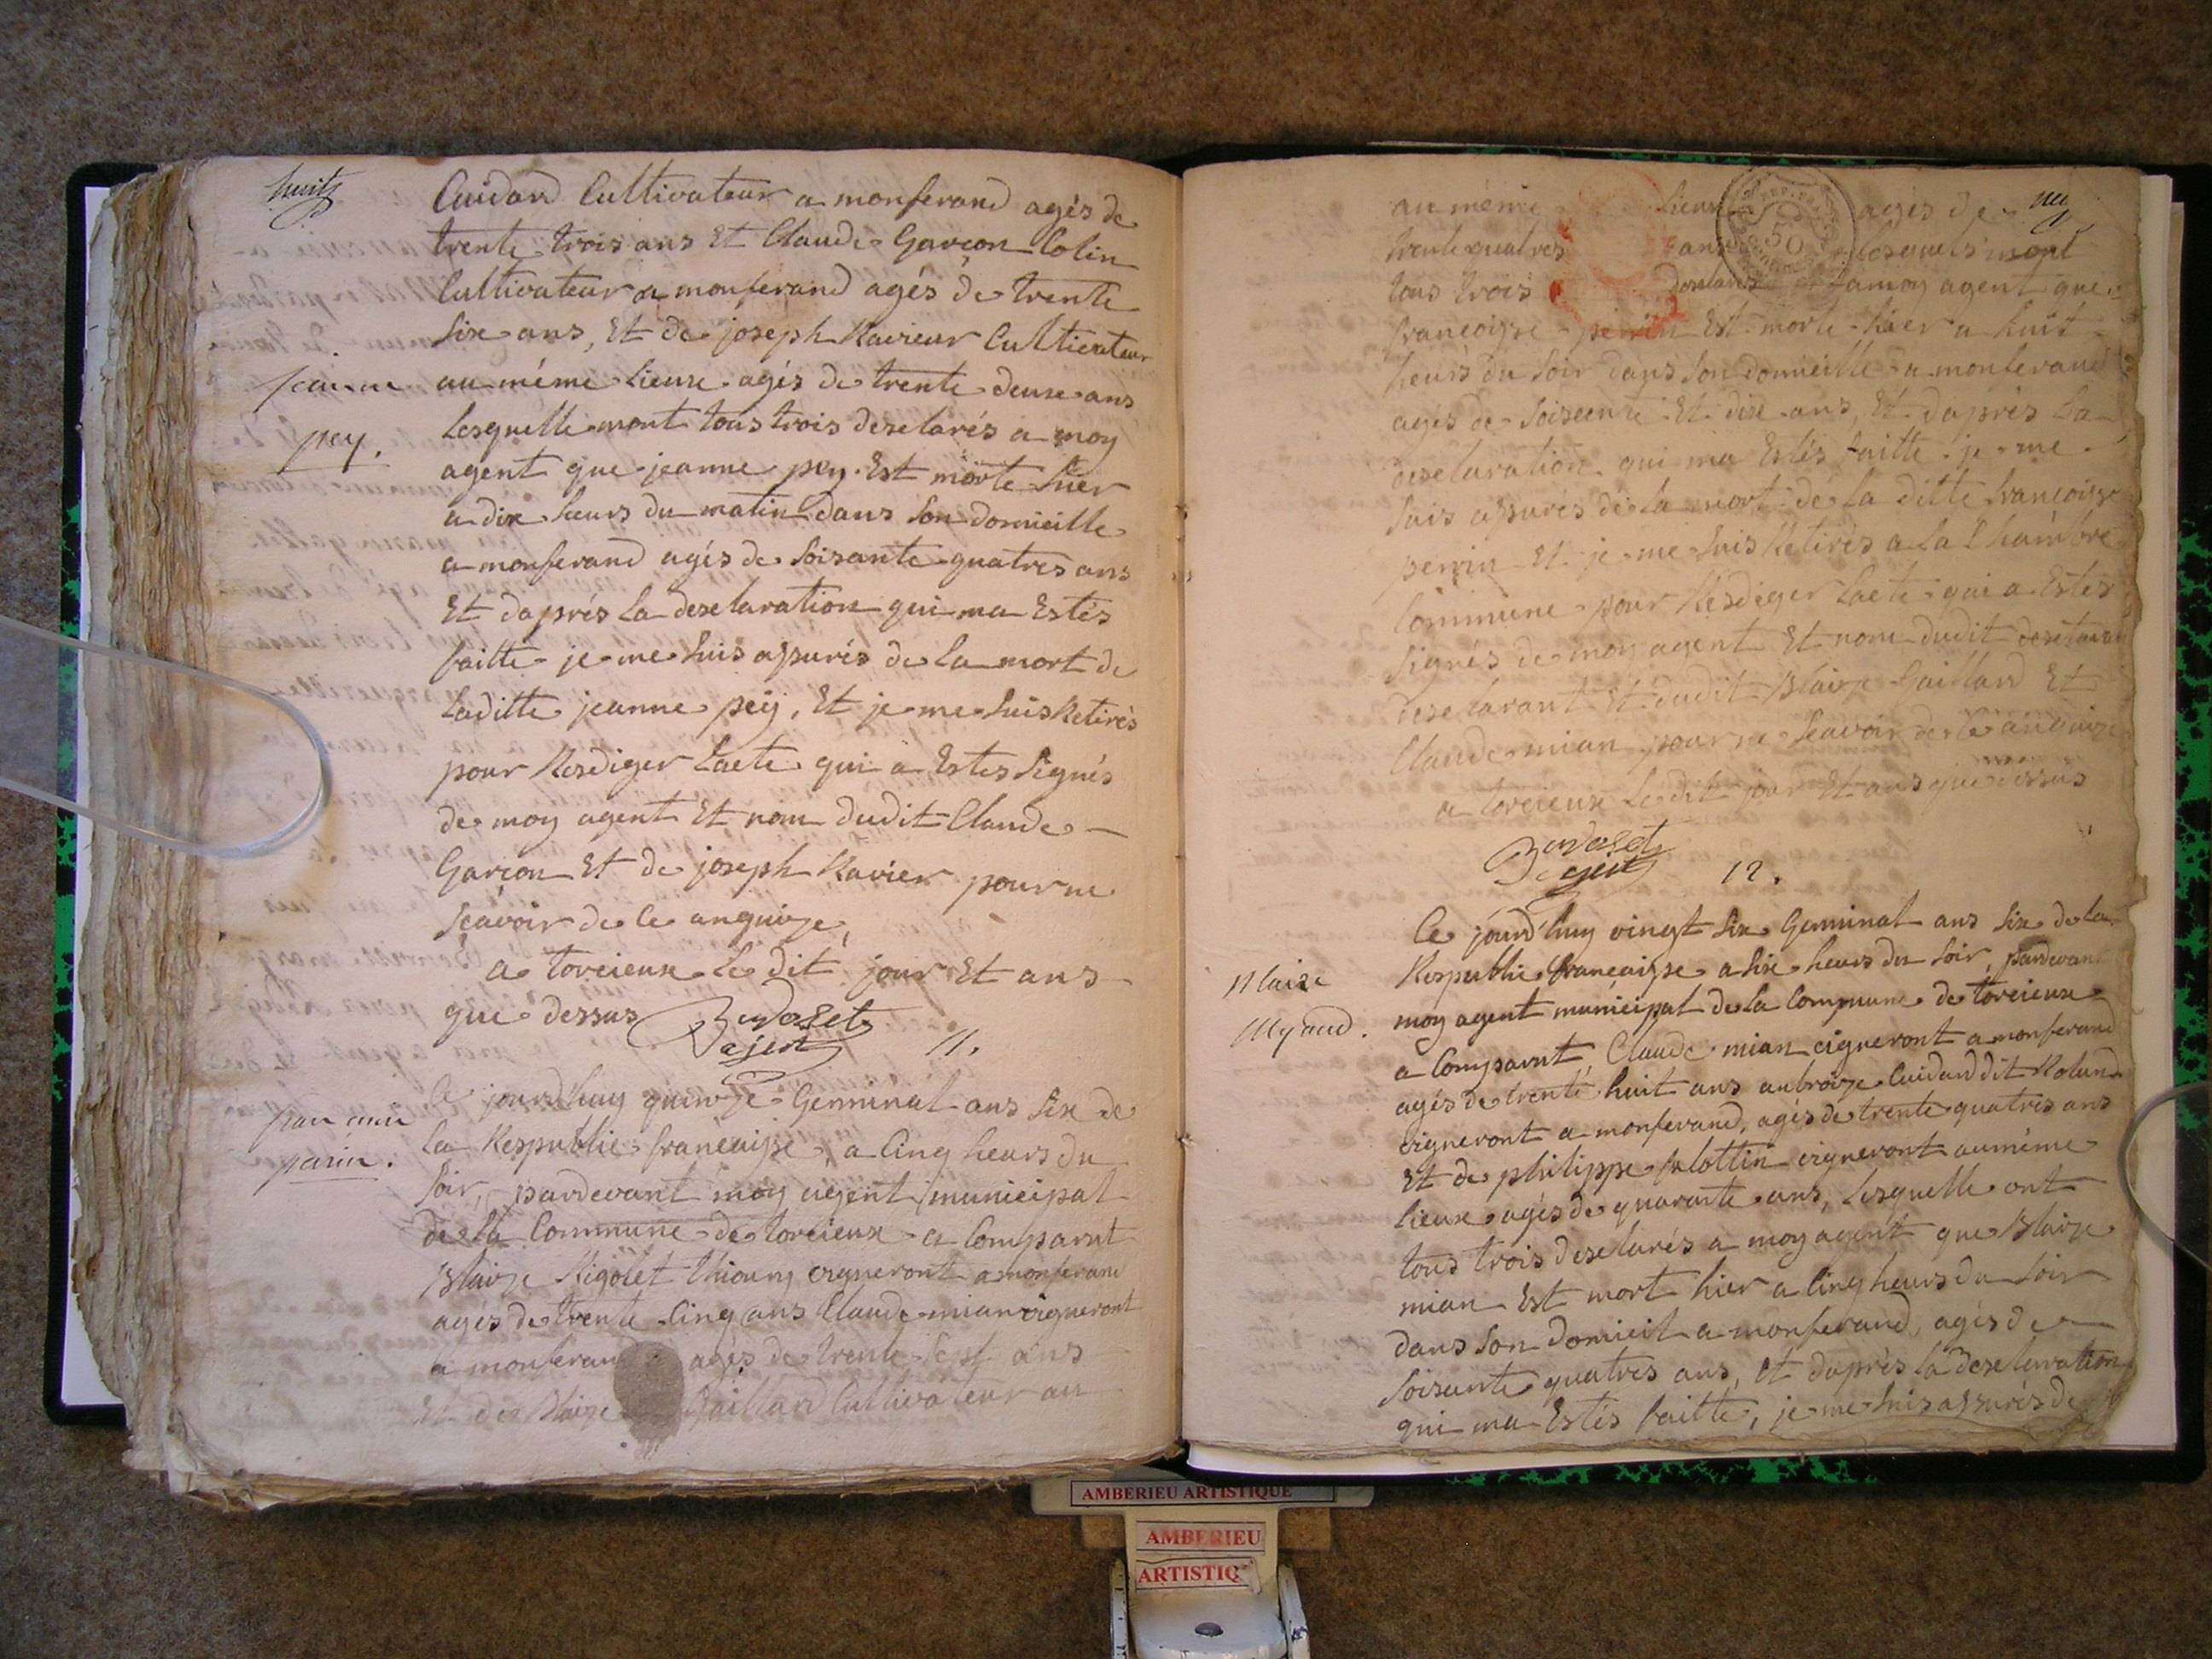 huitz
Cuidard Cultivateur a monferand agés de
trente trois ans Et Claude Garçon Colin
Cultivateur a monferand agés de trente
Six ans, Et de joseph Ravieur Cultivateur
jeanne
au méme lieux agés de trente deux ans
pey.
Lesquelle mont tous trois desclarés a moy
agent que jeanne pey Est morte hier
a dix heurs du matin dans Son domicille
a monferand agés de Soisante quatres ans
Et daprés la desclaration qui ma Estés
faitte je me Suis assurés de la mort de
Laditte jeanne pey, Et je me Suis Retirés
pour Resdiger Lacte qui a Estes Signés
de moy agent Et non dudit Claude
Garçon Et de joseph Ravier pour ne
Sçavoir de Ce anquize,
a torcieux Le dit jour Et ans
que dessus
agent
11.
Ce jourdhuy quinze Germinal ans Six de
la Respublic francaisse, a Cinq heurs du
perin.
Soir, pardevant moy agent municipal
de la Commune de torcieux a Comparut
Blaize Rigolet thioury vigneront a monferand
agés de trente Cinq ans Claude mian vigneront
a monferand agés de trente Sept ans
Et de Blaize Gaillard Cultivateur au
au méme lieux agés de
trente quatres ans Lesquels mont
tous trois desclarés a moy agent que
francoisse perrin Est morte hier a huit
heurs du Soir dans Son domicille a monferand
agés de Soiscente Et dix ans, Et daprés La
desclaration qui ma Estés faitte je me
Suis assurés de la mort de la ditte francoisse
perrin Et je me Suis Retirés a la Chambre
Commune pour Resdiger Lacte qui a Estes
Signés de moy agent Et non dudit
desclarant Et dudit Blaize Gaillard Et
Claude mian pour ne Sçavoir de Ce anquize
a torcieux Ledit jour Et ans que dessus
12.
Ce jourd'huy vingt Six Germinal ans Six de la
Respublic francaisse a Six heurs du Soir, pardevant
Blaize
moy agent municipal de la Commune de torcieux
Myand.
a Comparut Claude mian vigneront a monferand
agés de trente huit ans anbroize Cuidard dit Roland
vigneront a monferand, agés de trente quatres ans
Et de philippe vigneront au méme
lieux agés de quarante ans, Lesquelle ont
tous trois desclarés a moy agent que Blaize
mian Est mort hier a Cinq heurs du Soir
dans Son domicil a monferand, agés de
Soisante quatres ans, Et daprés la desclaration
qui ma Estés faitte, je me Suis assurés de
AMBERIEU ARTISTIQUE
AMBERIEU
ARTISTIQ